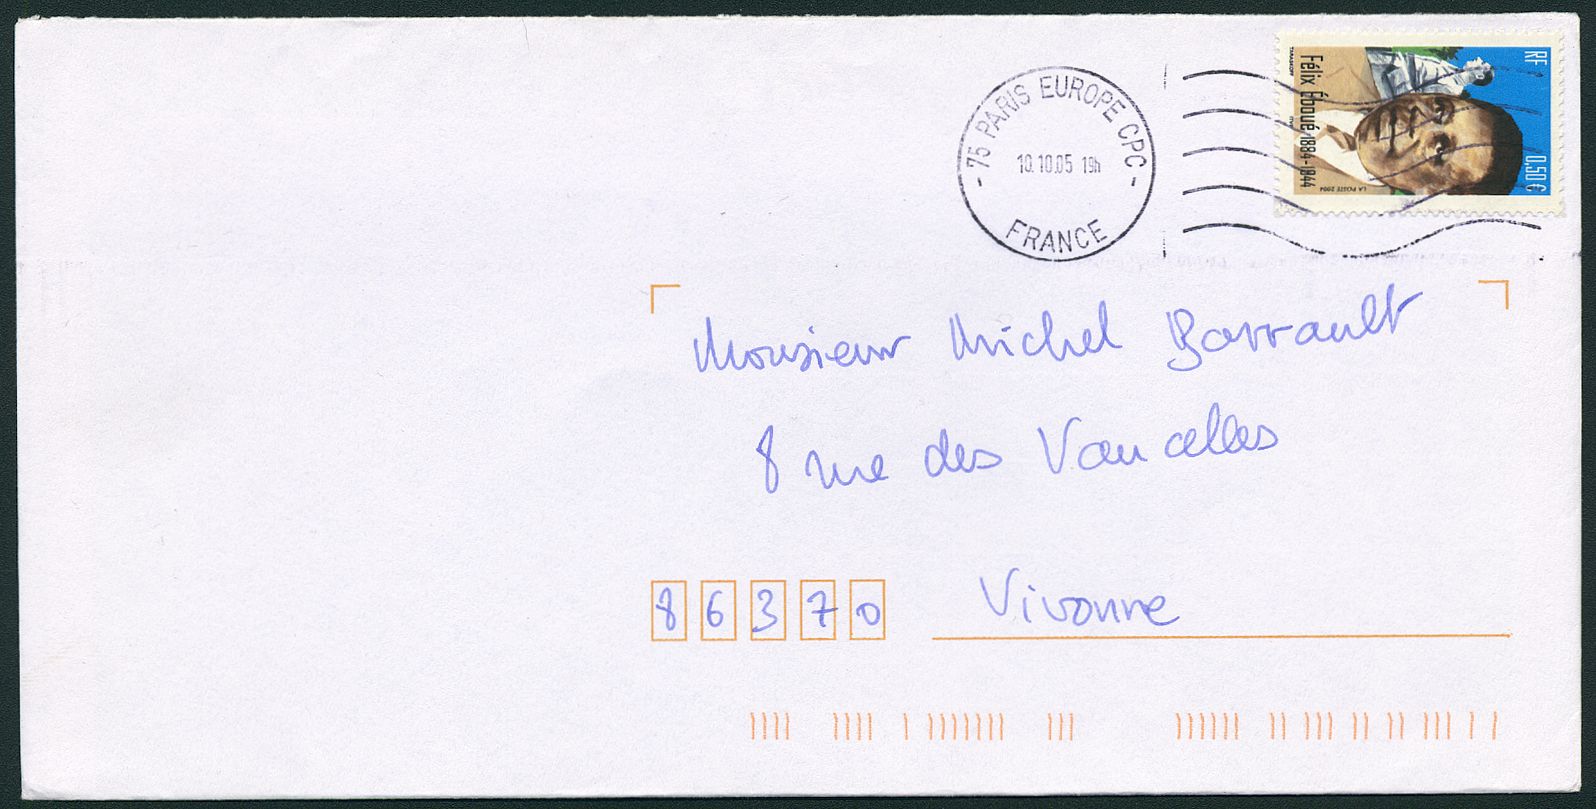 75 PARIS EUROPE CPC
10.10.05 19h
FRANCE
RF
0,50 €
Félix Éboué 1884-1944
LA POSTE 2004
Monsieur Michel Barrault
8 rue des Vaucelles
86370 Vivonne